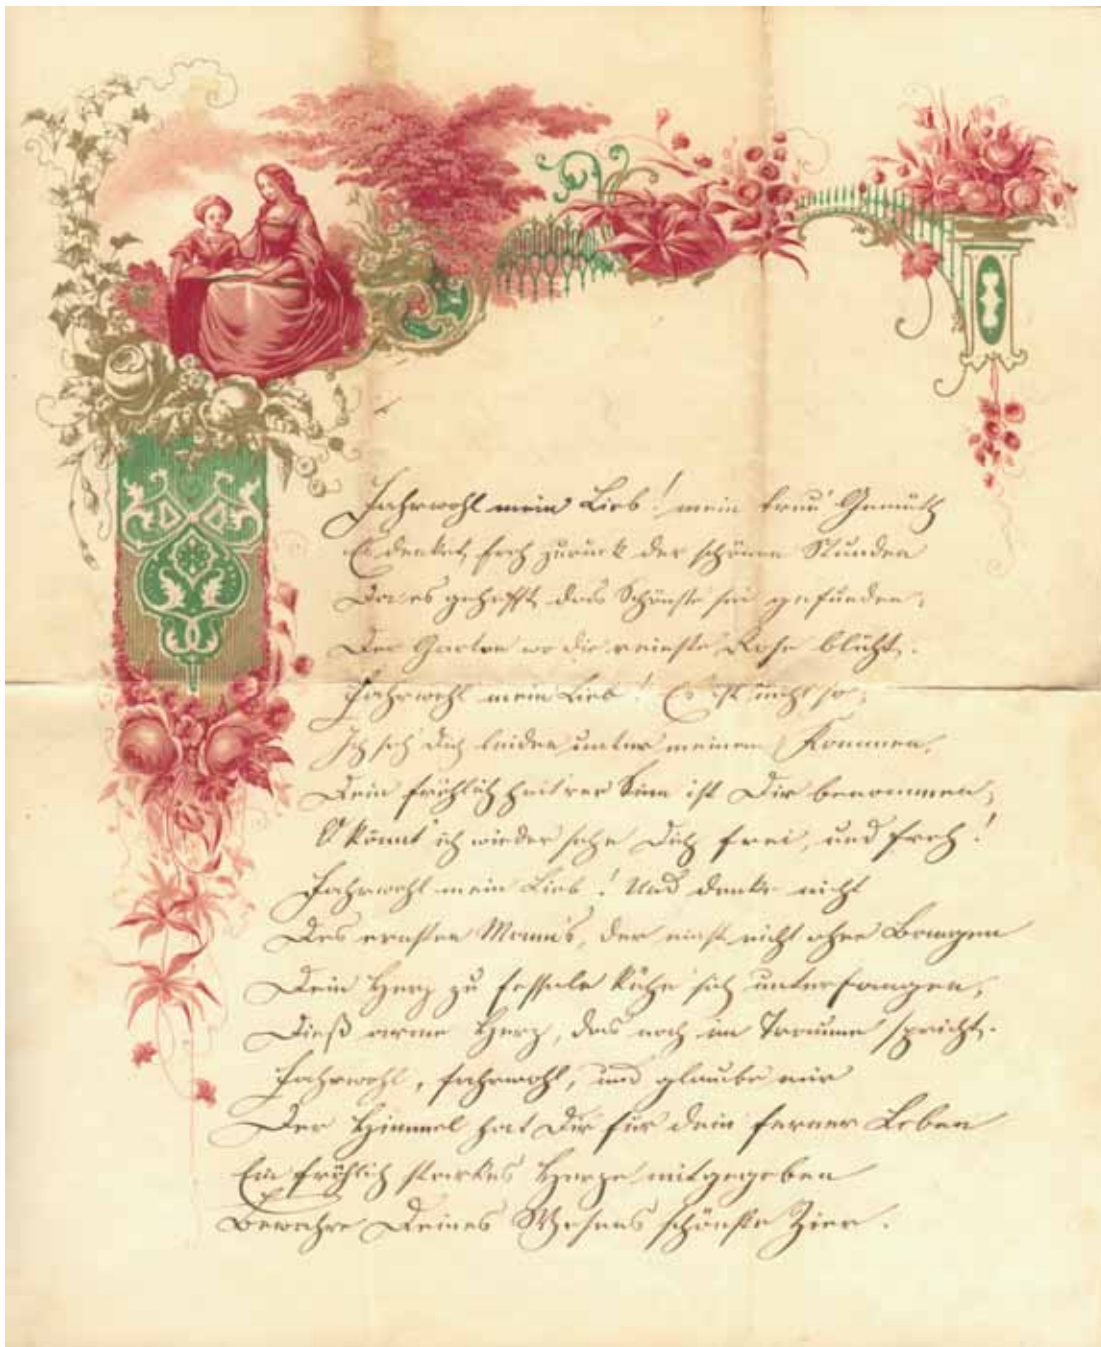 Fahrwohl mein Lieb! mein treu' Gemüth
Es denket froh zurück der schönen Stunden
Da es gehofft, das Schönste sei gefunden,
Der Garten wo die reinste Rose blüht.
Fahrwohl mein Lieb! Es ist nicht so,
Ich seh' Dich leiden unter meinem Kommen,
Dein fröhlich heitrer Sinn ist Dir benommen,
O könnt' ich wieder sehn Dich frei, und froh!
Fahrwohl mein Lieb! Und denke nicht
Des ernsten Mann's, der einst nicht ohne Bangen
Dein Herz zu fesseln kühn sich unterfangen,
Dieß arme Herz, das noch im Traume spricht.
Fahrwohl, fahrwohl, und glaube mir
Der Himmel hat Dir für dein ferner Leben
Ein fröhlich starkes Herze mitgegeben
Bewahre Deines Wesens schönste Zier.